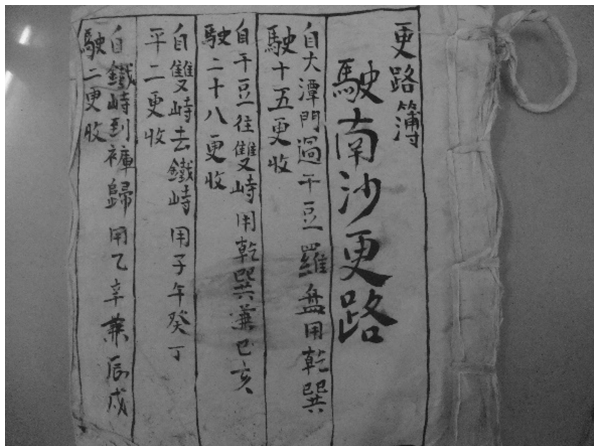 更路簿
駛南沙更路
自大潭門過干豆羅盘用乾巽
駛十五更收
自干豆往雙峙用乾巽兼巳亥
駛二十八更收
自雙峙去鐵峙用子午癸丁
平二更收
自鐵峙到褲歸用乙辛兼辰戌
駛二更收